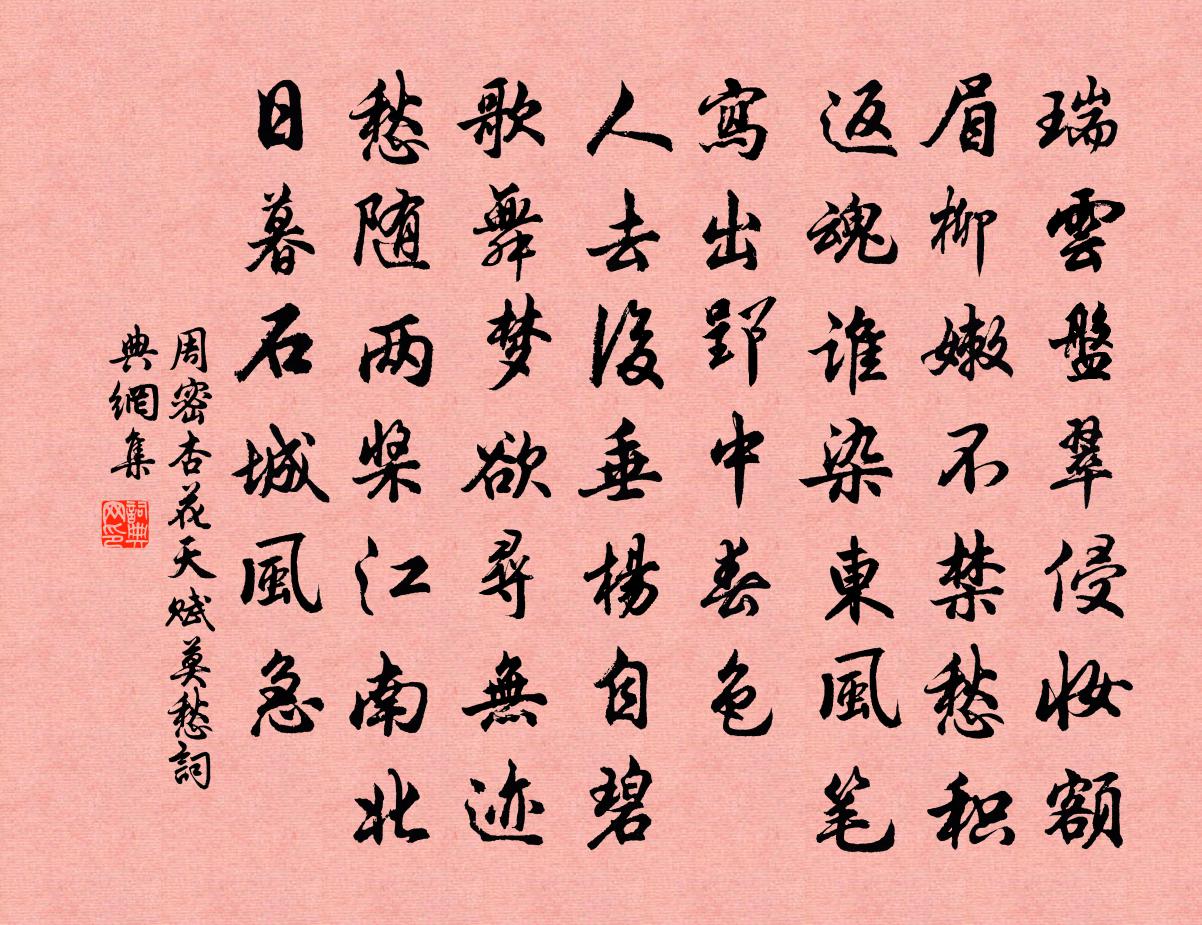 瑞雲盤翠侵妆額
眉柳嫩不禁愁积
返魂谁染東風笔
寫出郢中春色
人去後垂楊自碧
歌舞梦欲尋無迹
愁随两桨江南北
日暮石城風急
周密杏花天赋莫愁詞
典網集
詞典网印